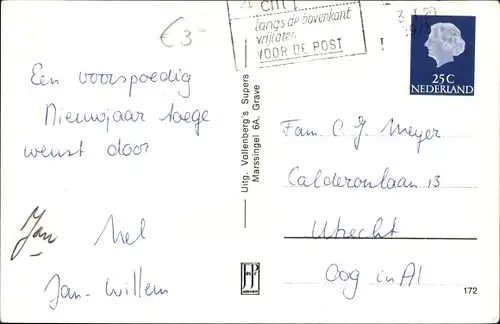 € 3=
cm
langs de bovenkant
vrijlaten
VOOR DE POST
25C
NEDERLAND
Een voorspoedig
Nieuwjaar toege
wenst door
Jan Nel
Jan-Willem
Uitg. Vollenberg's Supers
Marssingel 6A. Grave
Fam C. J. Meyer
Calderonlaan 13
Utrecht
Oog in Al
172